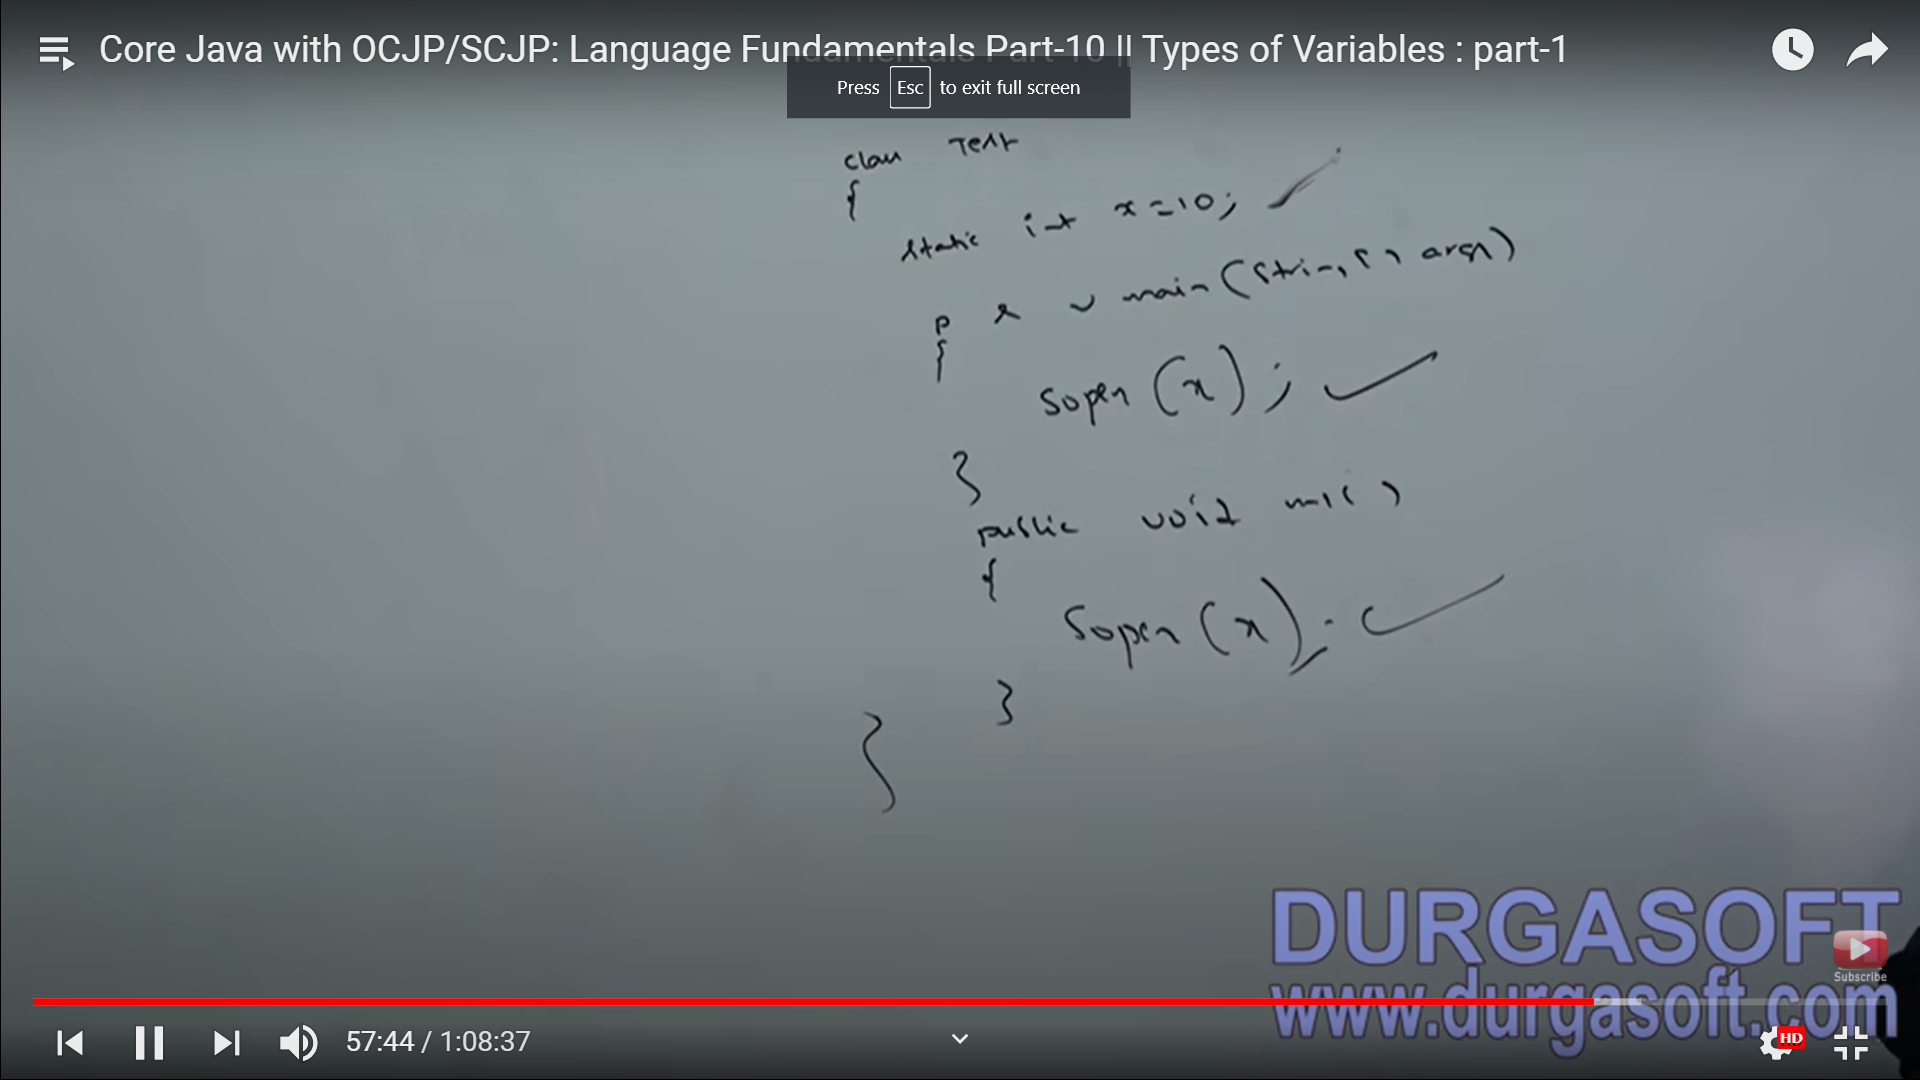 Core Java with OCJP/SCJP: Language Fundamentals Part-10 || Types of Variables : part-1
Press Esc to exit full screen
class Test
{
static int x=10;
p s v main(String[] args)
{
Sopln(x);
}
public void m1()
{
Sopln(x);
}
}
DURGASOFT
www.durgasoft.com
Subscribe
57:44 / 1:08:37
HD